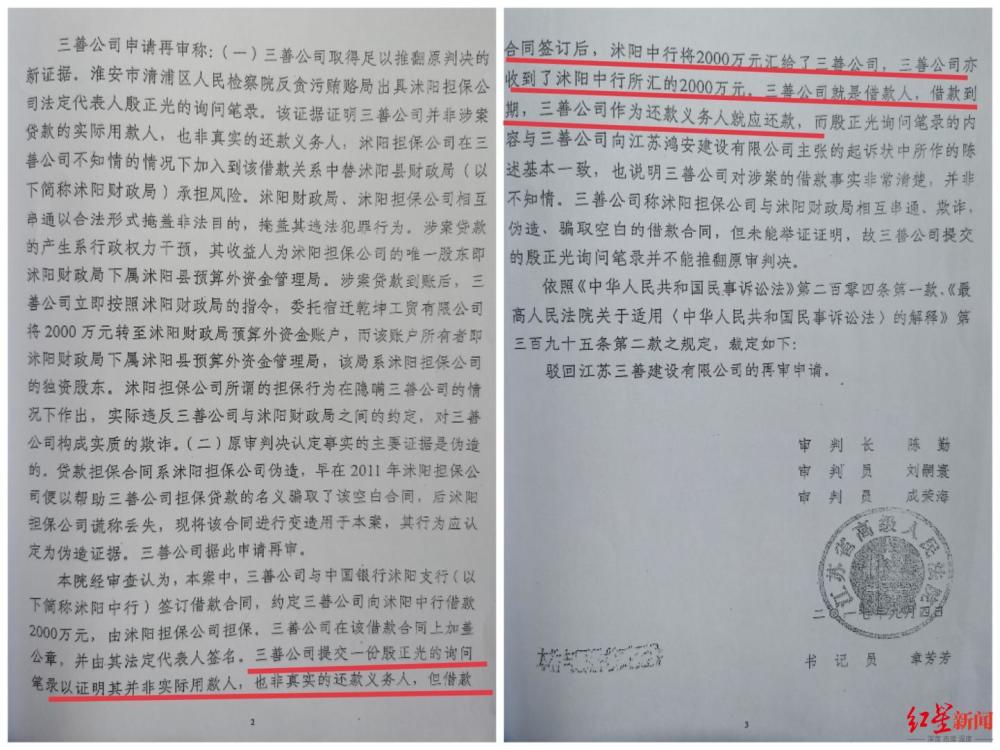 三善公司申请再审称：（一）三善公司取得足以推翻原判决的
新证据。淮安市清浦区人民检察院反贪污贿赂局出具沭阳担保公
司法定代表人殷正光的询问笔录。该证据证明三善公司并非涉案
贷款的实际用款人，也非真实的还款义务人，沭阳担保公司在三
善公司不知情的情况下加入到该借款关系中替沭阳县财政局（以
下简称沭阳财政局）承担风险。沭阳财政局、沭阳担保公司相互
串通以合法形式掩盖非法目的，掩盖其违法犯罪行为。涉案贷款
的产生系行政权力干预，其收益人为沭阳担保公司的唯一股东即
沭阳财政局下属沭阳县预算外资金管理局。涉案贷款到账后，三
善公司立即按照沭阳财政局的指令，委托宿迁乾坤工贸有限公司
将2000万元转至沭阳财政局预算外资金账户，而该账户所有者即
沭阳财政局下属沭阳县预算外资金管理局，该局系沭阳担保公司
的独资股东。沭阳担保公司所谓的担保行为在隐瞒三善公司的情
况下作出，实际违反三善公司与沭阳财政局之间的约定，对三善
公司构成实质的欺诈。（二）原审判决认定事实的主要证据是伪造
的。贷款担保合同系沭阳担保公司伪造，早在2011年沭阳担保公
司便以帮助三善公司担保贷款的名义骗取了该空白合同，后沭阳
担保公司谎称丢失，现将该合同进行变造用于本案，其行为应认
定为伪造证据。三善公司据此申请再审。
本院经审查认为，本案中，三善公司与中国银行沭阳支行（以
下简称沭阳中行）签订借款合同，约定三善公司向沭阳中行借款
2000万元，由沭阳担保公司担保。三善公司在该借款合同上加盖
公章，并由其法定代表人签名。三善公司提交一份殷正光的询问
笔录以证明其并非实际用款人，也非真实的还款义务人，但借款
2
合同签订后，沭阳中行将2000万元汇给了三善公司，三善公司亦
收到了沭阳中行所汇的2000万元。三善公司就是借款人，借款到
期，三善公司作为还款义务人就应还款，而殷正光询问笔录的内
容与三善公司向江苏鸿安建设有限公司主张的起诉状中所作的陈
述基本一致，也说明三善公司对涉案的借款事实非常清楚，并非
不知情。三善公司称沭阳担保公司与沭阳财政局相互串通、欺诈，
伪造、骗取空白的借款合同，但未能举证证明，故三善公司提交
的殷正光询问笔录并不能推翻原审判决。
依照《中华人民共和国民事诉讼法》第二百零四条第一款、《最
高人民法院关于适用〈中华人民共和国民事诉讼法〉的解释》第
三百九十五条第二款之规定，裁定如下：
驳回江苏三善建设有限公司的再审申请。
审 判 长 陈 勤
审 判 员 刘嗣寰
审 判 员 成荣海
江苏省高级人民法院
二〇一七年九月四日
书 记 员 章芳芳
3
红星新闻
深度 态度 温度